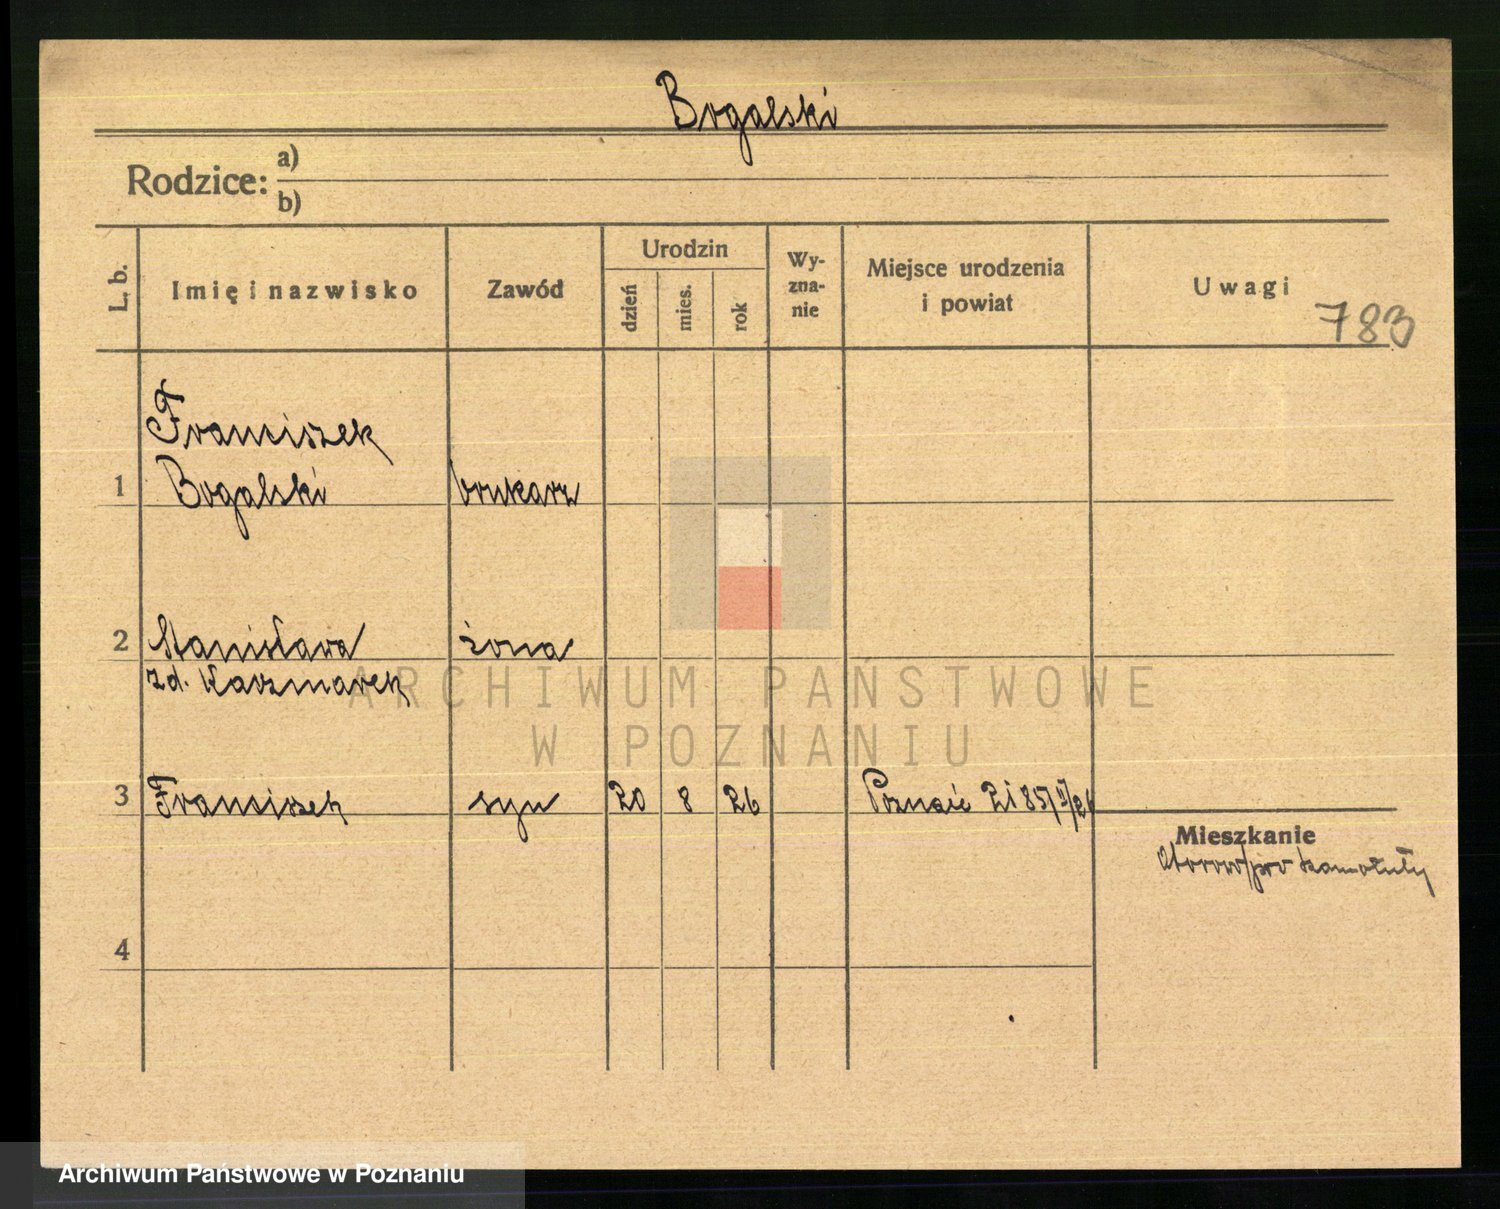 Bogalski
Rodzice: a)
b)
L. b.
Imię i nazwisko
Zawód
Urodzin
dzień
mies.
rok
Wy-
zna-
nie
Miejsce urodzenia
i powiat
Uwagi
783
Franciszek
1 Bogalski brukarz
2 Stanisława żona
zd. Kaczmarek
3 Franciszek syn 20 8 26 Poznań
Mieszkanie
4
ARCHIWUM PAŃSTWOWE
W POZNANIU
Archiwum Państwowe w Poznaniu